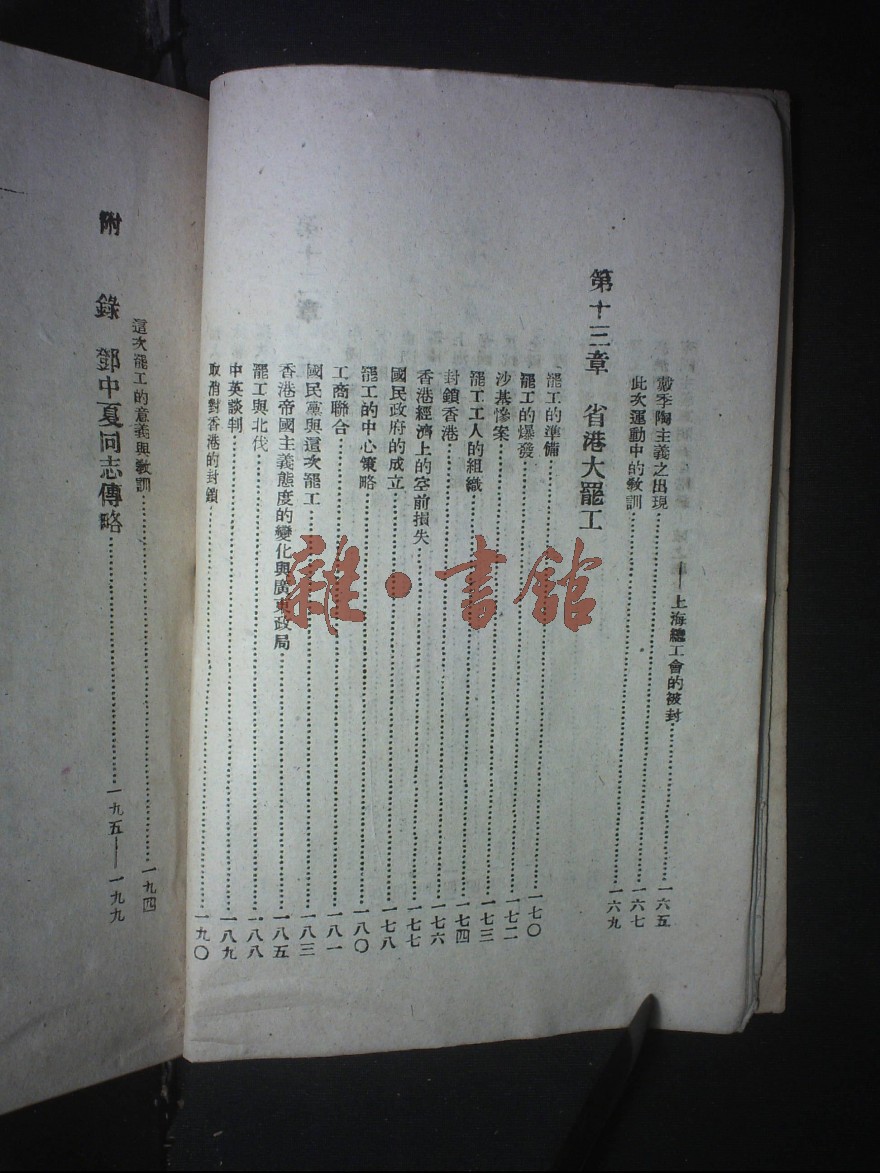 ——上海總工會的被封……一六五
戴季陶主義之出現……一六七
此次運動中的教訓……一六九
第十三章　省港大罷工
罷工的準備……一七〇
罷工的爆發……一七二
沙基慘案……一七三
罷工工人的組織……一七四
封鎖香港……一七六
香港經濟上的空前損失……一七七
國民政府的成立……一七八
罷工的中心策略……一八〇
工商聯合……一八一
國民黨與這次罷工……一八三
香港帝國主義態度的變化與廣東政局……一八五
罷工與北伐……一八八
中英談判……一八九
取消對香港的封鎖……一九〇
這次罷工的意義與教訓……一九四
附　錄　鄧中夏同志傳略……一九五——一九九
雜·書館